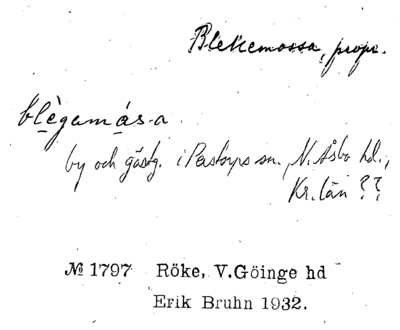 Blekemossa, propr.
blègamás-a
by och gästg. i Perstorps sn., N. Åsbo hd.,
Kr. län ??
№ 1797 Röke, V.Göinge hd
Erik Bruhn 1932.